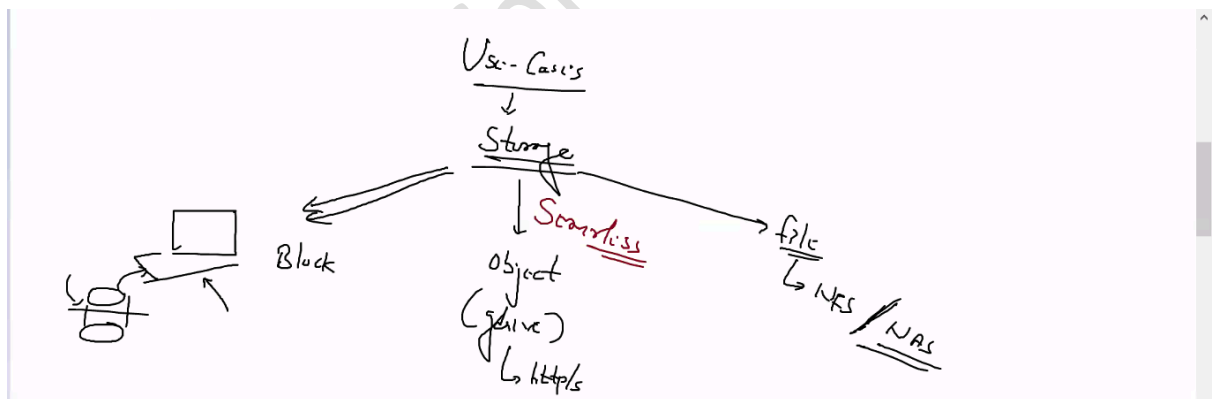 Use-Cases
Storage
Serverless
Block
Object
(gdrive)
http/s
file
NFS / NAS